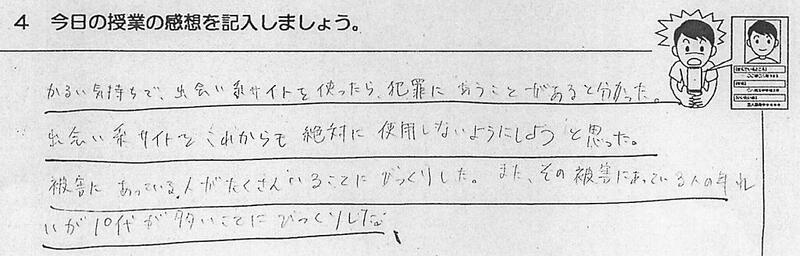 4 今日の授業の感想を記入しましょう。
かるい気持ちで、出会い系サイトを使ったら、犯罪にあうことがあると分かった。
出会い系サイトをこれからも絶対に使用しないようにしようと思った。
被害にあっている人がたくさんいることにびっくりした。また、その被害にあっている人の年れ
いが10代が多いことにびっくりした。